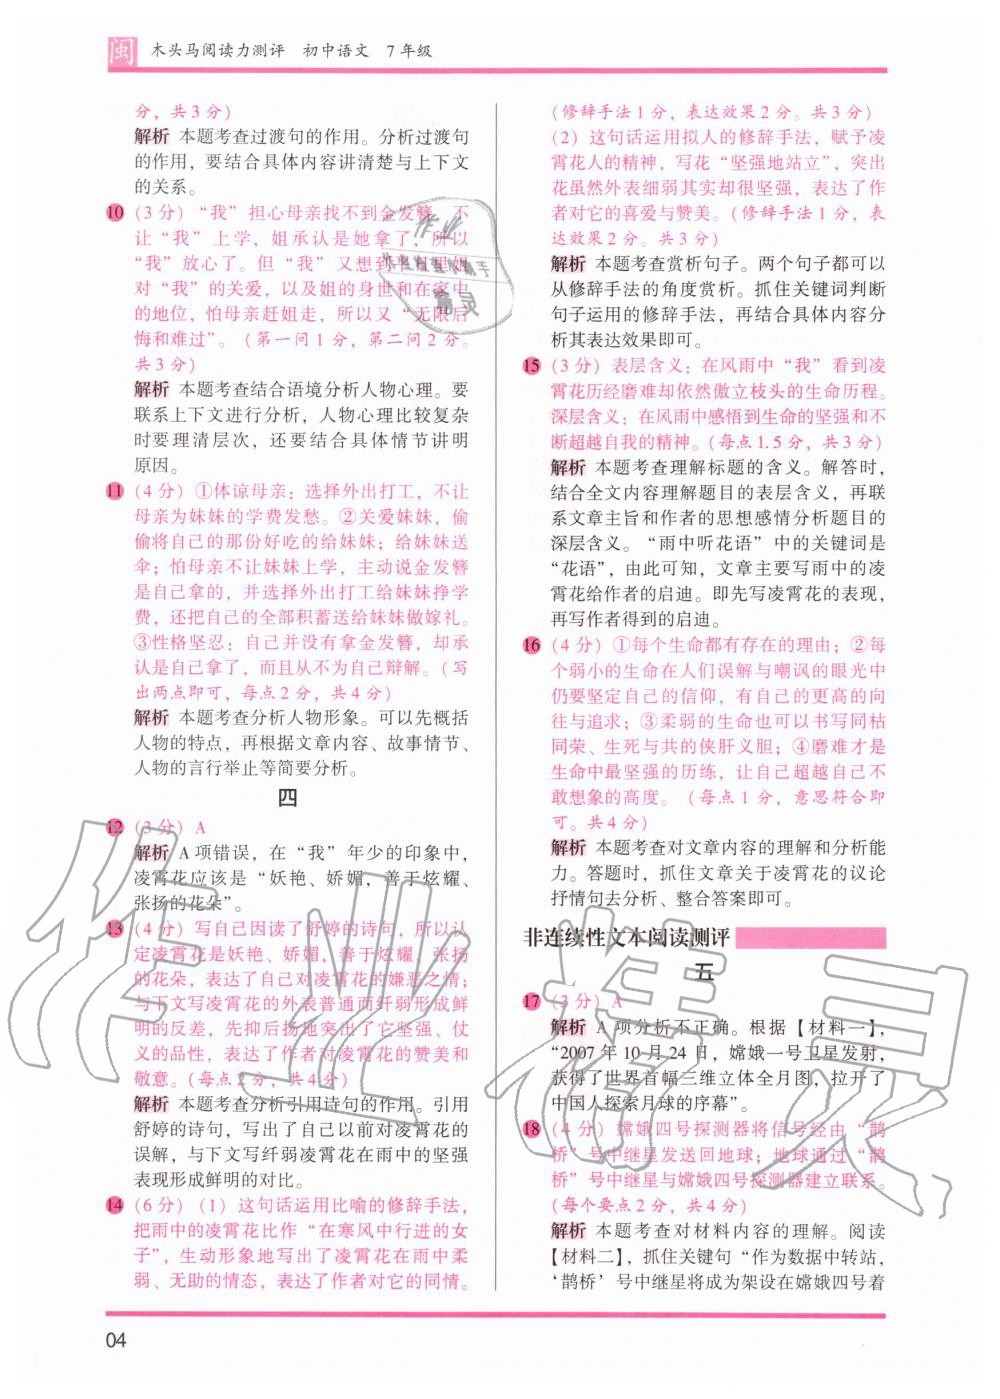 闽 木头马阅读力测评 初中语文 7年级
分，共3分)
解析 本题考查过渡句的作用。分析过渡句
的作用，要结合具体内容讲清楚与上下文
的关系。
10 (3分)“我”担心母亲找不到金发簪，不
让“我”上学，姐承认是她拿了，所以
“我”放心了。但“我”又想到
对“我”的关爱，以及姐的身世和在家中
的地位，怕母亲赶姐走，所以又“无限后
悔和难过”。(第一问1分，第二问2分。
共3分)
解析 本题考查结合语境分析人物心理。要
联系上下文进行分析，人物心理比较复杂
时要理清层次，还要结合具体情节讲明
原因。
11 (4分)①体谅母亲：选择外出打工，不让
母亲为妹妹的学费发愁。②关爱妹妹，偷
偷将自己的那份好吃的给妹妹；给妹妹送
伞；怕母亲不让妹妹上学，主动说金发簪
是自己拿的，并选择外出打工给妹妹挣学
费，还把自己的全部积蓄送给妹妹做嫁礼。
③性格坚忍：自己并没有拿金发簪，却承
认是自己拿了，而且从不为自己辩解。(写
出两点即可，每点2分，共4分)
解析 本题考查分析人物形象。可以先概括
人物的特点，再根据文章内容、故事情节、
人物的言行举止等简要分析。
四
12 (3分) A
解析 A项错误，在“我”年少的印象中，
凌霄花应该是“妖艳、娇媚，善于炫耀、
张扬的花朵”。
13 (4分)写自己因读了舒婷的诗句，所以认
定凌霄花是妖艳、娇媚，善于炫耀、张扬
的花朵，表达了自己对凌霄花的嫌恶之情；
与下文写凌霄花的外表普通而纤弱形成鲜
明的反差，先抑后扬，突出了它坚强、仗
义的品性，表达了作者对凌霄花的赞美和
敬意。(每点2分，共4分)
解析 本题考查分析引用诗句的作用。引用
舒婷的诗句，写出了自己以前对凌霄花的
误解，与下文写纤弱凌霄花在雨中的坚强
表现形成鲜明的对比。
14 (6分)(1)这句话运用比喻的修辞手法，
把雨中的凌霄花比作“在寒风中行进的女
子”，生动形象地写出了凌霄花在雨中柔
弱、无助的情态，表达了作者对它的同情。
(修辞手法1分，表达效果2分。共3分)
(2)这句话运用拟人的修辞手法，赋予凌
霄花人的精神，写花“坚强地站立”，突出
花虽然外表细弱其实却很坚强，表达了作
者对它的喜爱与赞美。(修辞手法1分，表
达效果2分。共3分)
解析 本题考查赏析句子。两个句子都可以
从修辞手法的角度赏析。抓住关键词判断
句子运用的修辞手法，再结合具体内容分
析其表达效果即可。
15 (3分)表层含义：在风雨中“我”看到凌
霄花历经磨难却依然傲立枝头的生命历程。
深层含义：在风雨中感悟到生命的坚强和不
断超越自我的精神。(每点1.5分，共3分)
解析 本题考查理解标题的含义。解答时，
结合全文内容理解题目的表层含义，再联
系文章主旨和作者的思想感情分析题目的
深层含义。“雨中听花语”中的关键词是
“花语”，由此可知，文章主要写雨中的凌
霄花给作者的启迪。即先写凌霄花的表现，
再写作者得到的启迪。
16 (4分)①每个生命都有存在的理由；②每
个弱小的生命在人们误解与嘲讽的眼光中
仍要坚定自己的信仰，有自己的更高的向
往与追求；③柔弱的生命也可以书写同枯
同荣、生死与共的侠肝义胆；④磨难才是
生命中最坚强的历练，让自己超越自己不
敢想象的高度。(每点1分，意思符合即
可。共4分)
解析 本题考查对文章内容的理解和分析能
力。答题时，抓住文章关于凌霄花的议论
抒情句去分析、整合答案即可。
非连续性文本阅读测评
五
17 (3分) A
解析 A项分析不正确。根据【材料一】，
“2007年10月24日，嫦娥一号卫星发射，
获得了世界首幅三维立体全月图，拉开了
中国人探索月球的序幕”。
18 (4分)嫦娥四号探测器将信号经由“鹊
桥”号中继星发送回地球；地球通过“鹊
桥”号中继星与嫦娥四号探测器建立联系。
(每个要点2分，共4分)
解析 本题考查对材料内容的理解。阅读
【材料二】，抓住关键句“作为数据中转站，
‘鹊桥’号中继星将成为架设在嫦娥四号着
04
作业精灵